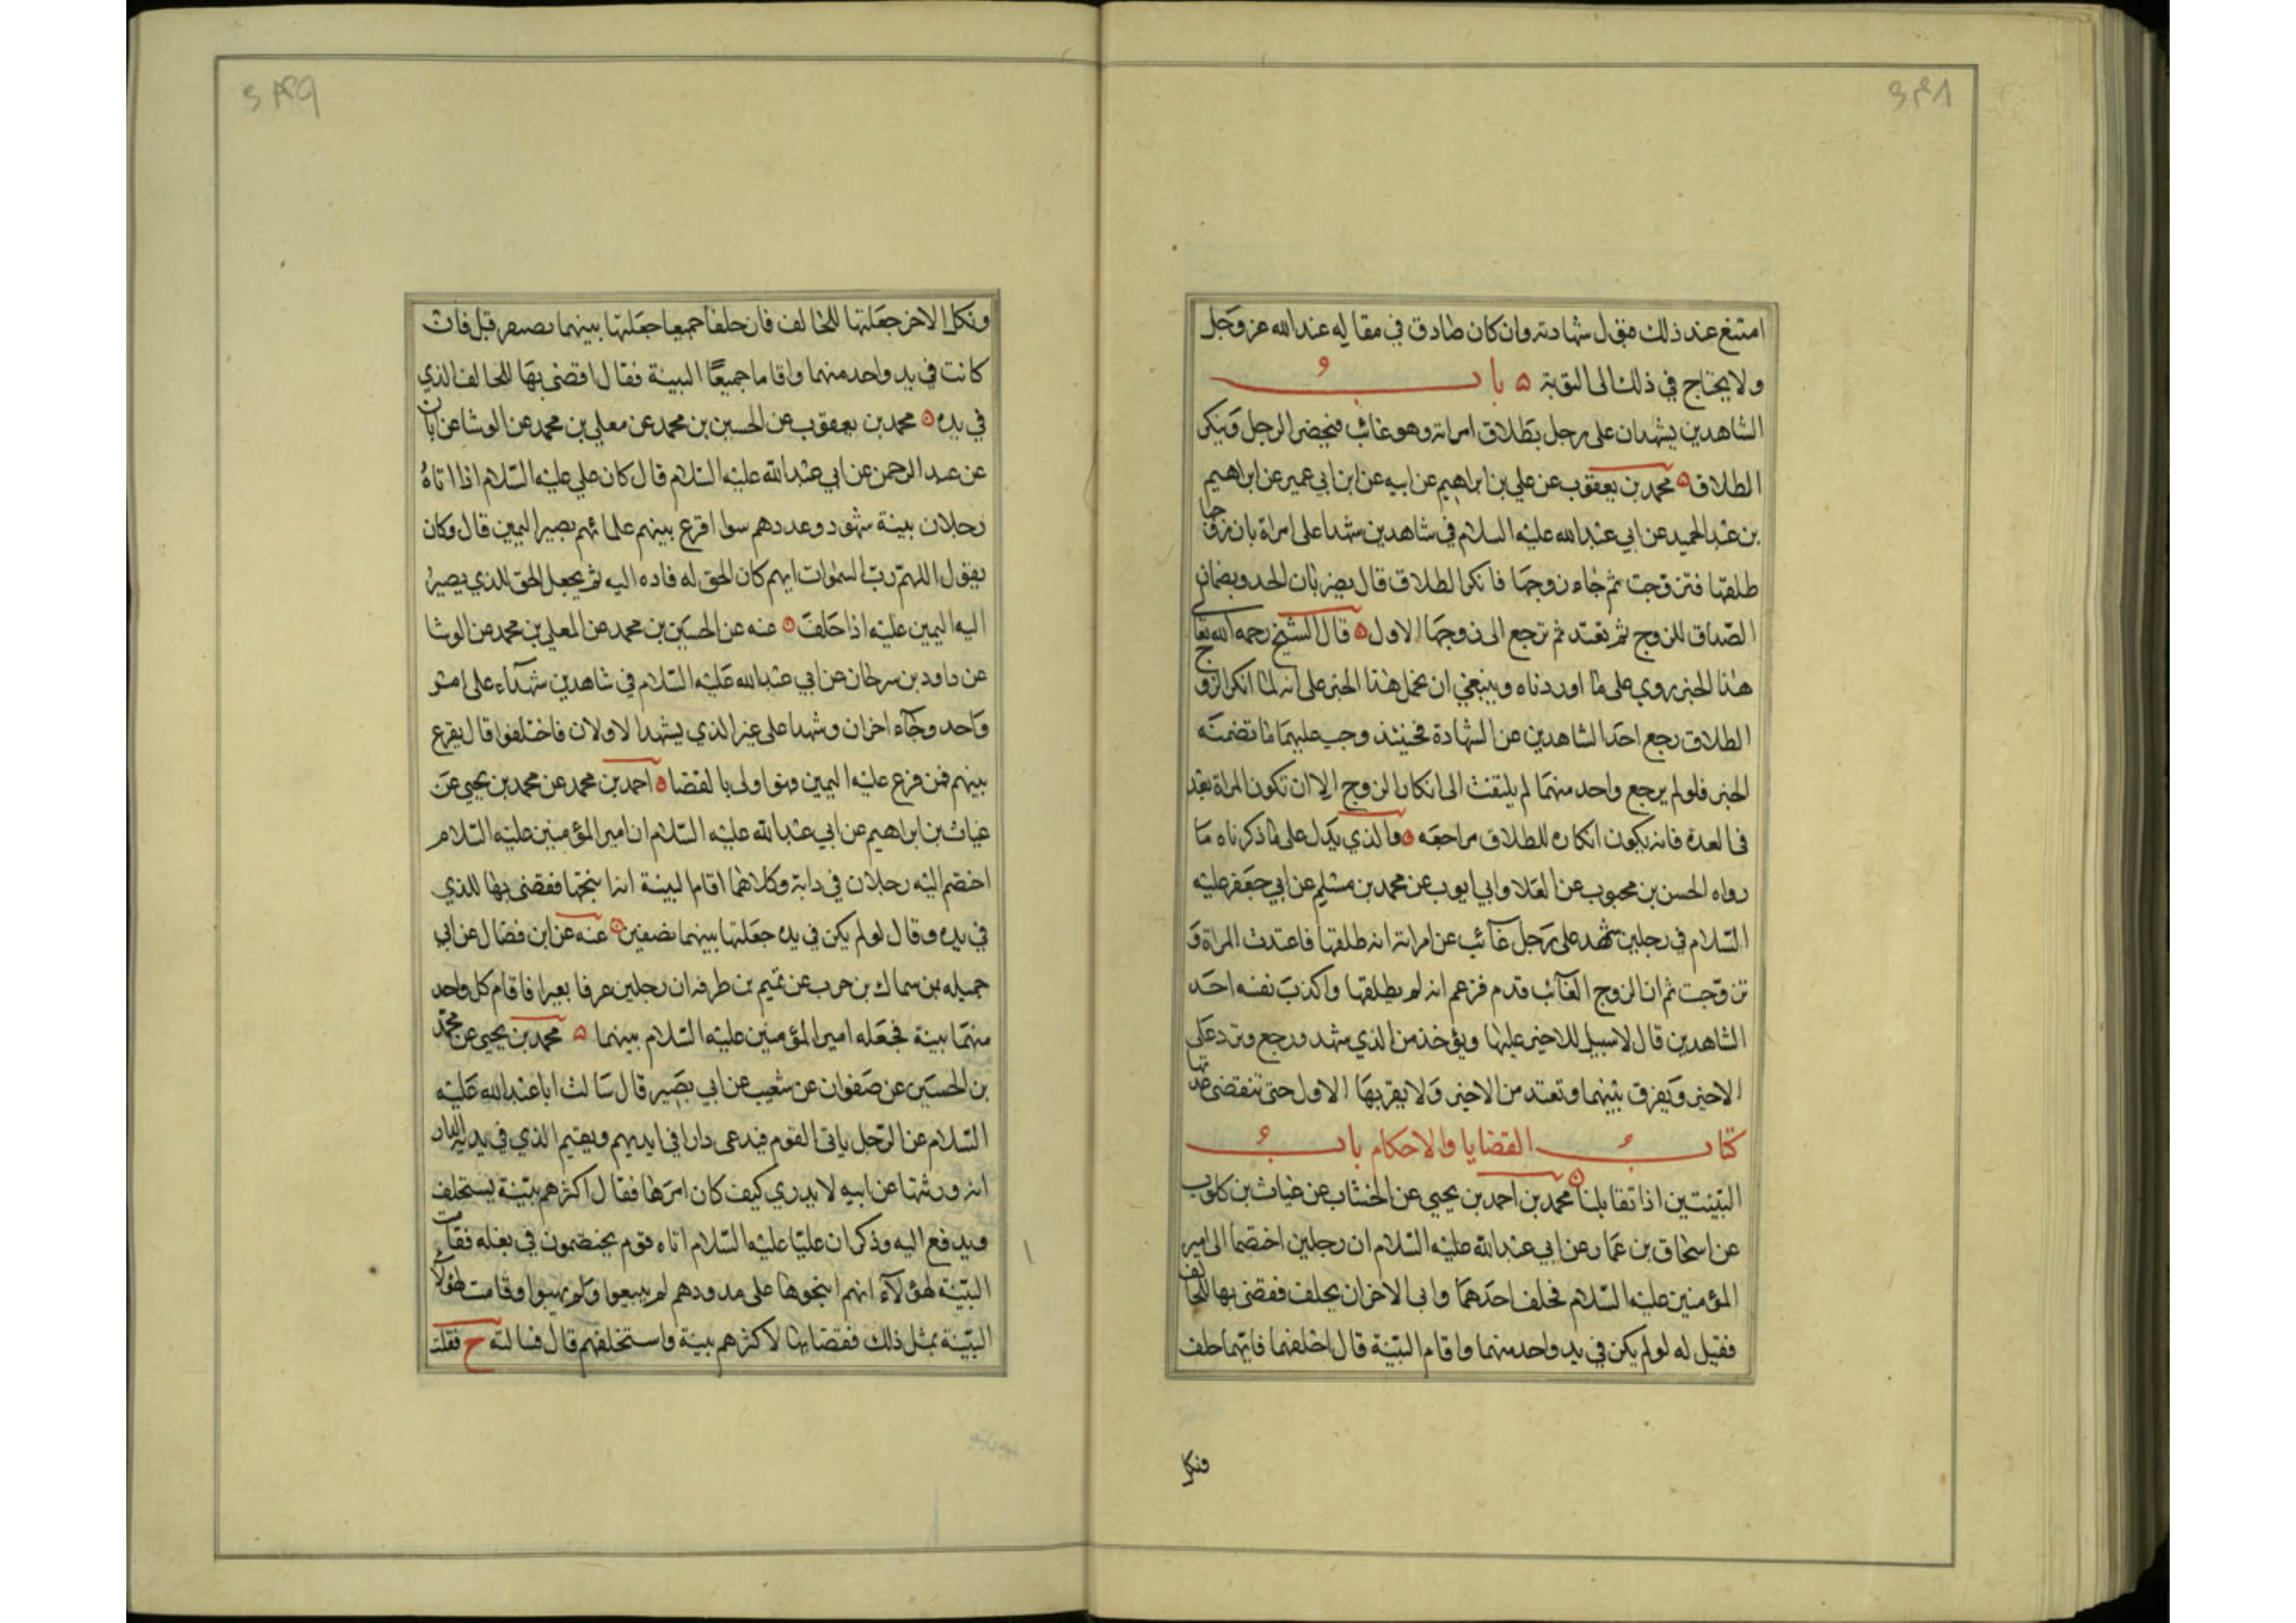 امتنع عند ذلك من قبول شهادته وان كان صادق في مقاله عند الله عز وجل
ولا يحتاج في ذلك الى التوبة باب
الشاهدين يشهدان على رجل بطلاق امراته وهو غائب فيحضر الرجل وينكر
الطلاق محمد بن يعقوب عن علي بن ابراهيم عن ابيه عن ابن ابي عمير عن ابراهيم
بن عبد الحميد عن ابي عبد الله عليه السلام في شاهدين شهدا على امراة بان زوجها
طلقها فتزوجت ثم جاء زوجها فانكر الطلاق قال يضربان الحد ويضمنان
الصداق للزوج ثم تعتد ثم ترجع الى زوجها الاول قال الشيخ رحمه الله تعالى
هذا الخبر روي على ما اوردناه وينبغي ان نحمل هذا الخبر على انه لما انكر الزوج
الطلاق رجع احد الشاهدين عن الشهادة فحينئذ وجب عليهما ما تضمنه
الخبر فلو لم يرجع واحد منهما لم يلتفت الى انكار الزوج الا ان تكون المراة بعد
في العدة فانه يكون انكاره للطلاق مراجعه والذي يدل على ما ذكرناه ما
رواه الحسن بن محبوب عن العلا وابي ايوب عن محمد بن مسلم عن ابي جعفر عليه
السلام في رجلين شهد على رجل غائب عن امراته انه طلقها فاعتدت المراة و
تزوجت ثم ان الزوج الغائب قدم فزعم انه لم يطلقها واكذب نفسه احد
الشاهدين قال لا سبيل للاخير عليها ويؤخذ من الذي شهد ورجع وترد على
الاخير ويفرق بينهما وتعتد من الاخير ولا يقربها الاول حتى تنقضي عدتها
كتاب القضايا والاحكام باب
البينتين اذا تقابلتا محمد بن احمد بن يحيى عن الخشاب عن غياث بن كلوب
عن اسحاق بن عمار عن ابي عبد الله عليه السلام ان رجلين اختصما الى امير
المؤمنين عليه السلام فحلف احدهما وابى الاخر ان يحلف فقضى بها للحالف
فقيل له لو لم يكن في يد واحد منهما واقام البينة قال احلفهما فايهما حلف
ونكل
ونكل الاخر جعلتها للحالف فان حلفا جميعا جعلتها بينهما نصفين قيل فان
كانت في يد واحد منهما واقاما جميعا البينة فقال اقضي بها للحالف الذي
في يده محمد بن يعقوب عن الحسين بن محمد عن معلي بن محمد عن الوشا عن ابان
عن عبد الرحمن عن ابي عبد الله عليه السلام قال كان علي عليه السلام اذا اتاه
رجلان ببينة شهود وعددهم سوا اقرع بينهم على ايهم يصير اليمين قال وكان
يقول اللهم رب السموات ايهم كان الحق له فاده اليه ثم يجعل الحق للذي يصير
اليه اليمين عليه اذا حلف عنه عن الحسين بن محمد عن المعلي بن محمد عن الوشا
عن داود بن سرحان عن ابي عبد الله عليه السلام في شاهدين شهداء على امر
واحد وجاء اخران وشهدا على غير الذي يشهد الاولان فاختلفوا قال يقرع
بينهم فمن قرع عليه اليمين وهو اولى بالقضا احمد بن محمد عن محمد بن يحيى عن
غياث بن ابراهيم عن ابي عبد الله عليه السلام ان امير المؤمنين عليه السلام
اختصم اليه رجلان في دابة وكلاهما اقام البينة انه انتجها فقضى بها للذي
في يده وقال لو لم يكن في يده جعلتها بينهما نصفين عنه عن ابن فضال عن ابي
جميله عن سماك بن حرب عن تميم بن طرفه ان رجلين عرفا بعيرا فاقام كل واحد
منهما بينة فجعله امير المؤمنين عليه السلام بينهما محمد بن يحيى عن محمد
بن الحسين عن صفوان عن شعيب عن ابي بصير قال سالت ابا عبد الله عليه
السلام عن الرجل ياتي القوم فيدعي دارا في ايديهم ويقيم الذي في يديه الدار
انه ورثها عن ابيه لا يدري كيف كان امرها فقال اكثرهم بينة يستحلف
ويدفع اليه وذكر ان عليا عليه السلام اتاه قوم يختصمون في بغلة فقامت
البينة لهؤلاء انهم انتجوها على مذودهم لم يبيعوا ولم يهبوا وقامت لهؤلاء
البينة بمثل ذلك فقضا بها لاكثرهم بينة واستحلفهم قال فسالته ح فقلت